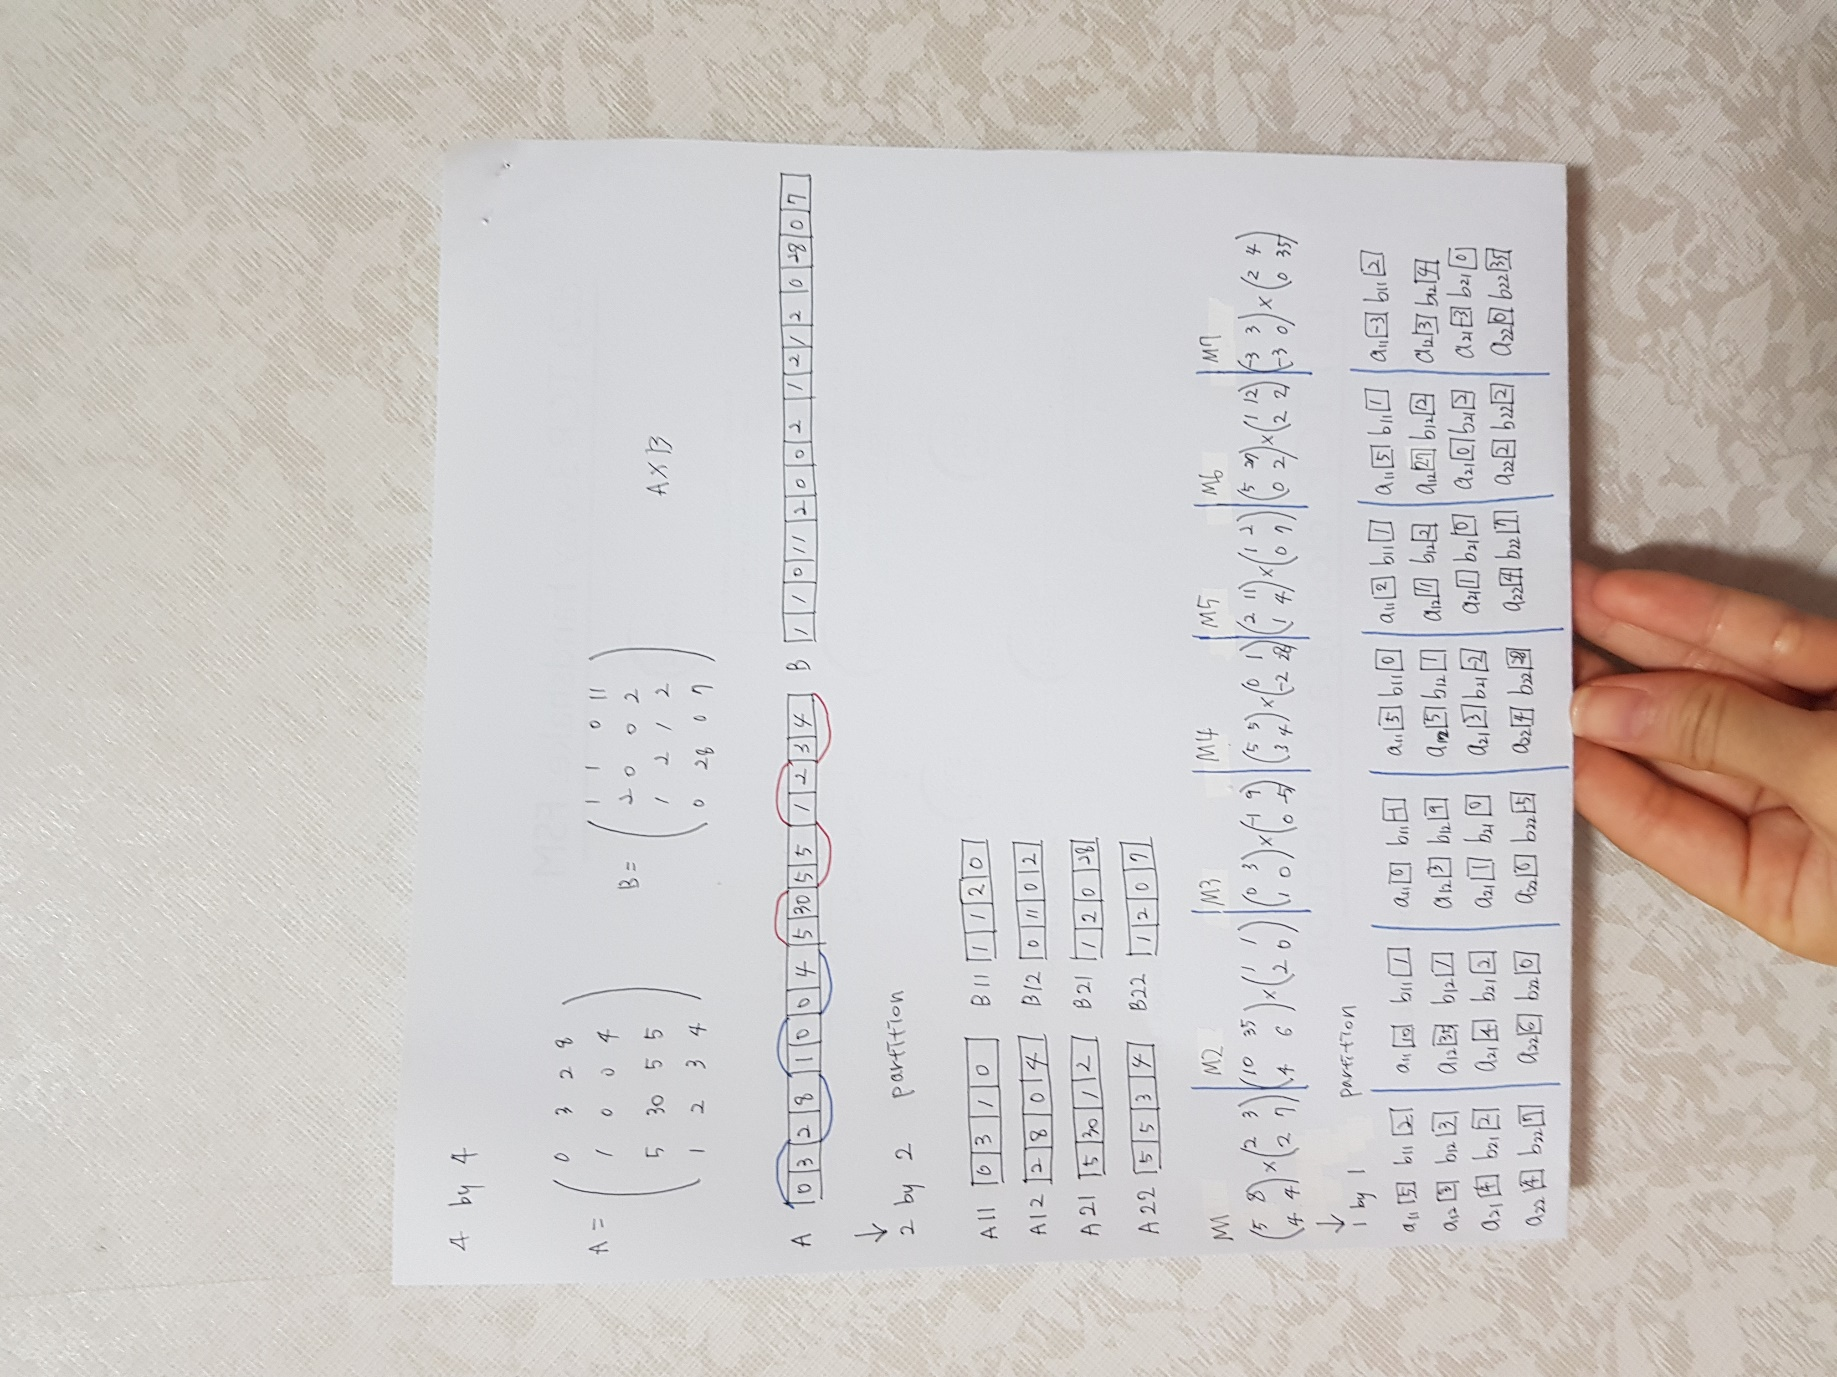 4 by 4
A = ( 0 3 2 8 B = ( 1 1 0 11
1 0 0 4 2 0 0 2 A×B
5 30 5 5 1 2 1 2
1 2 3 4 ) 0 28 0 7 )
A 0 3 2 8 1 0 0 4 5 30 5 5 1 2 3 4 B 1 1 0 11 2 0 0 2 1 2 1 2 0 28 0 7
↓
2 by 2 partition
A11 0 3 1 0 B11 1 1 2 0
A12 2 8 0 4 B12 0 11 0 2
A21 5 30 1 2 B21 1 2 0 28
A22 5 5 3 4 B22 1 2 0 7
M1 M2 M3 M4 M5 M6 M7
(5 8)×(2 3) (10 35)×(1 1) (0 3)×(-1 9) (5 5)×(0 1) (2 11)×(1 2) (5 27)×(1 12) (-3 3)×(2 4)
(4 4) (2 7) (4 6) (2 0) (1 0) (0 -5) (3 4) (-2 28) (1 4) (0 7) (0 2) (2 2) (-3 0) (0 35)
↓
1 by 1 partition
a11 5 b11 2 a11 10 b11 1 a11 0 b11 -1 a11 5 b11 0 a11 2 b11 1 a11 5 b11 1 a11 -3 b11 2
a12 8 b12 3 a12 35 b12 1 a12 3 b12 9 a12 5 b12 1 a12 11 b12 2 a12 27 b12 12 a12 3 b12 4
a21 4 b21 2 a21 4 b21 2 a21 1 b21 0 a21 3 b21 -2 a21 1 b21 0 a21 0 b21 2 a21 -3 b21 0
a22 4 b22 7 a22 6 b22 0 a22 0 b22 -5 a22 4 b22 28 a22 4 b22 7 a22 2 b22 2 a22 0 b22 35